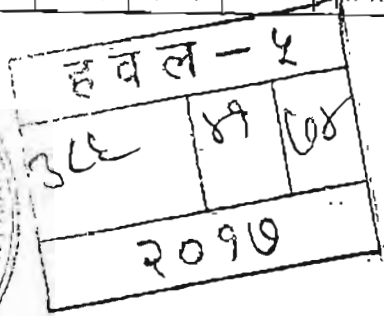 हवल - ५
३८६ ४१ ७४
२०१७